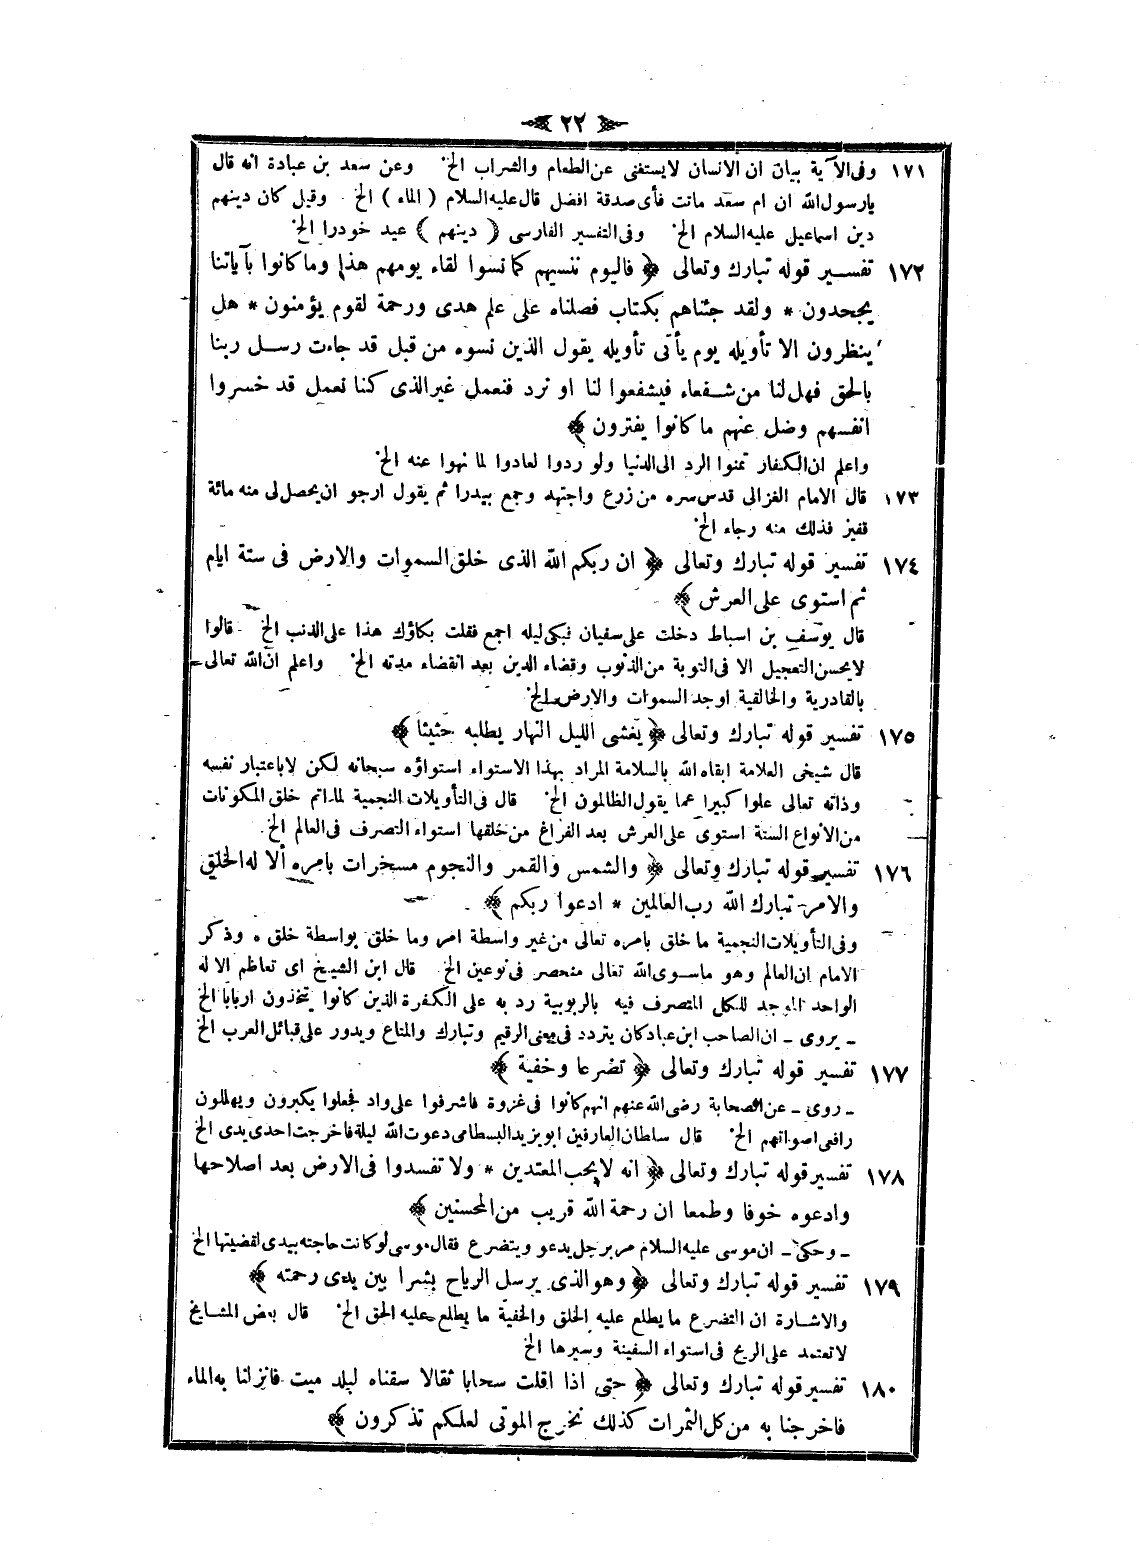 ٢٢
١٧١ وفى الآية بيان ان الانسان لايستغنى عن الطعام والشراب الخ وعن سعد بن عبادة انه قال
يارسول الله ان ام سعد ماتت فأى صدقة افضل قال عليه السلام ( الماء ) الخ وقيل كان دينهم
دين اسماعيل عليه السلام الخ وفى التفسير الفارسى ( دينهم ) عيد خودرا الخ
١٧٢ تفسير قوله تبارك وتعالى ﴿ فاليوم ننسيهم كما نسوا لقاء يومهم هذا وما كانوا بآياتنا
يجحدون * ولقد جئناهم بكتاب فصلناه على علم هدى ورحمة لقوم يؤمنون * هل
ينظرون الا تأويله يوم يأتى تأويله يقول الذين نسوه من قبل قد جاءت رسل ربنا
بالحق فهل لنا من شفعاء فيشفعوا لنا او نرد فنعمل غير الذى كنا نعمل قد خسروا
انفسهم وضل عنهم ما كانوا يفترون ﴾
واعلم ان الكفار تمنوا الرد الى الدنيا ولو ردوا لعادوا لما نهوا عنه الخ
١٧٣ قال الامام الغزالى قدس سره من زرع واجتهد وجمع بيدرا ثم يقول ارجو ان يحصل لى منه مائة
قفيز فذلك منه رجاء الخ
١٧٤ تفسير قوله تبارك وتعالى ﴿ ان ربكم الله الذى خلق السموات والارض فى ستة ايام
ثم استوى على العرش ﴾
قال يوسف بن اسباط دخلت على سفيان فبكى ليله اجمع فقلت بكاؤك هذا على الذنب الخ قالوا
لايحسن التعجيل الا فى التوبة من الذنوب وقضاء الدين بعد انقضاء مدته الخ واعلم ان الله تعالى
بالقادرية والخالقية اوجد السموات والارض الخ
١٧٥ تفسير قوله تبارك وتعالى ﴿ يغشى الليل النهار يطلبه حثيثا ﴾
قال شيخى العلامة ابقاه الله بالسلامة المراد بهذا الاستواء استواؤه سبحانه لكن لا باعتبار نفسه
وذاته تعالى علوا كبيرا عما يقول الظالمون الخ قال فى التأويلات النجمية لما اتم خلق المكونات
من الانواع الستة استوى على العرش بعد الفراغ من خلقها استواء التصرف فى العالم الخ
١٧٦ تفسير قوله تبارك وتعالى ﴿ والشمس والقمر والنجوم مسخرات بامره ألا له الخلق
والامر تبارك الله رب العالمين * ادعوا ربكم ﴾
وفى التأويلات النجمية ما خلق بامره تعالى من غير واسطة امر وما خلق بواسطة خلق * وذكر
الامام ان العالم وهو ماسوى الله تعالى منحصر فى نوعين الخ قال ابن الشيخ اى تعاظم الاله
الواحد الموجد للكل المتصرف فيه بالربوبية رد به على الكفرة الذين كانوا يتخذون اربابا الخ
ـ يروى ـ ان الصاحب ابن عباد كان يتردد فى معنى الرقيم وتبارك والمتاع ويدور على قبائل العرب الخ
١٧٧ تفسير قوله تبارك وتعالى ﴿ تضرعا وخفية ﴾
ـ روى ـ عن الصحابة رضى الله عنهم انهم كانوا فى غزوة فاشرفوا على واد فجعلوا يكبرون ويهللون
رافعى اصواتهم الخ قال سلطان العارفين ابو يزيد البسطامى دعوت الله ليلة فاخرجت احدى يدى الخ
١٧٨ تفسير قوله تبارك وتعالى ﴿ انه لا يحب المعتدين * ولا تفسدوا فى الارض بعد اصلاحها
وادعوه خوفا وطمعا ان رحمة الله قريب من المحسنين ﴾
ـ وحكى ـ ان موسى عليه السلام مر برجل يدعو ويتضرع فقال موسى لو كانت حاجته بيدى لقضيتها الخ
١٧٩ تفسير قوله تبارك وتعالى ﴿ وهو الذى يرسل الرياح بشرا بين يدى رحمته ﴾
والاشارة ان التضرع ما يطلع عليه الخلق والخفية ما يطلع عليه الحق الخ قال بعض المشايخ
لا تعتمد على الريح فى استواء السفينة وسيرها الخ
١٨٠ تفسير قوله تبارك وتعالى ﴿ حتى اذا اقلت سحابا ثقالا سقناه لبلد ميت فانزلنا به الماء
فاخرجنا به من كل الثمرات كذلك نخرج الموتى لعلكم تذكرون ﴾